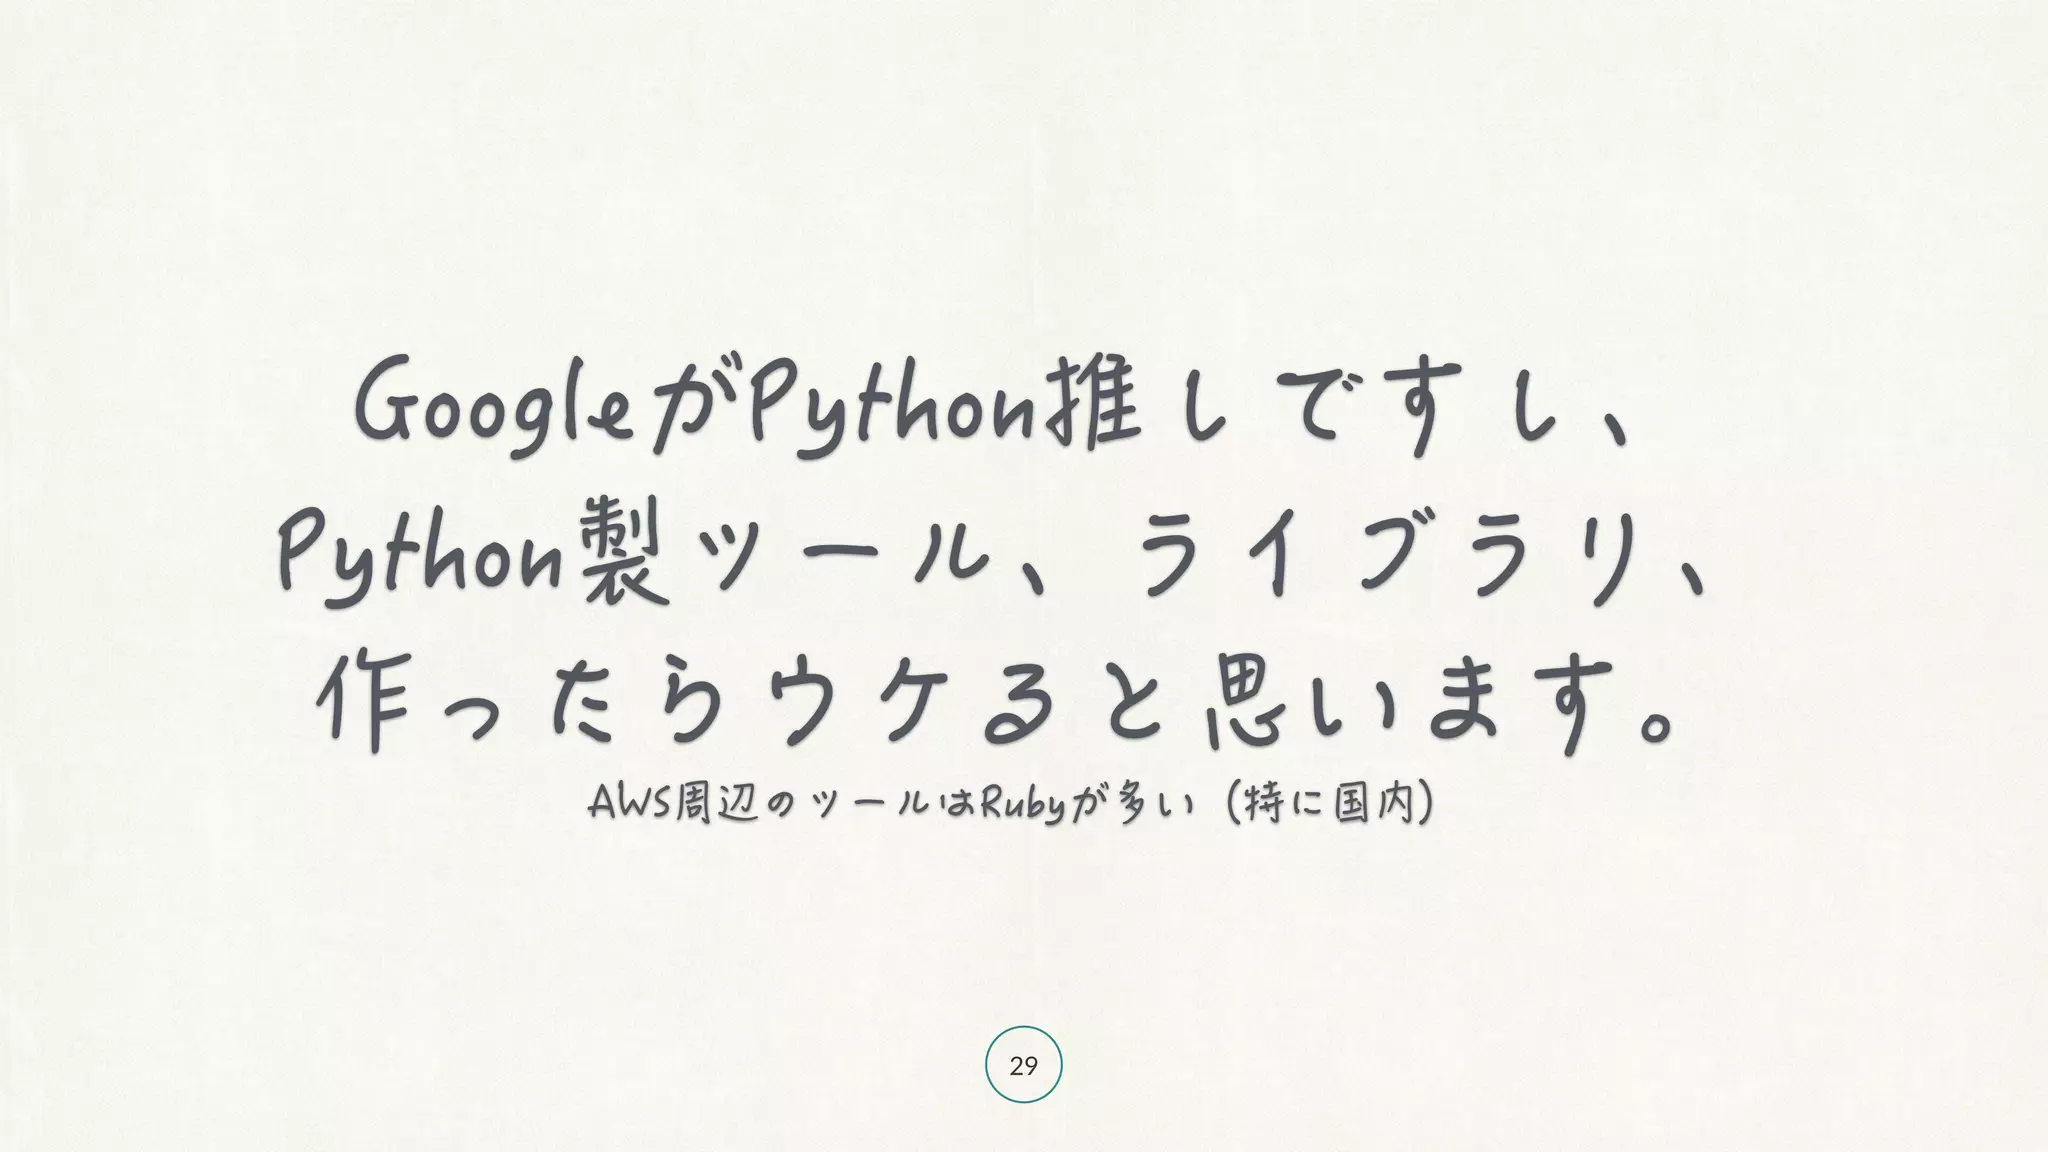 GoogleがPython推しですし、
Python製ツール、ライブラリ、
作ったらウケると思います。
AWS周辺のツールはRubyが多い (特に国内)
29